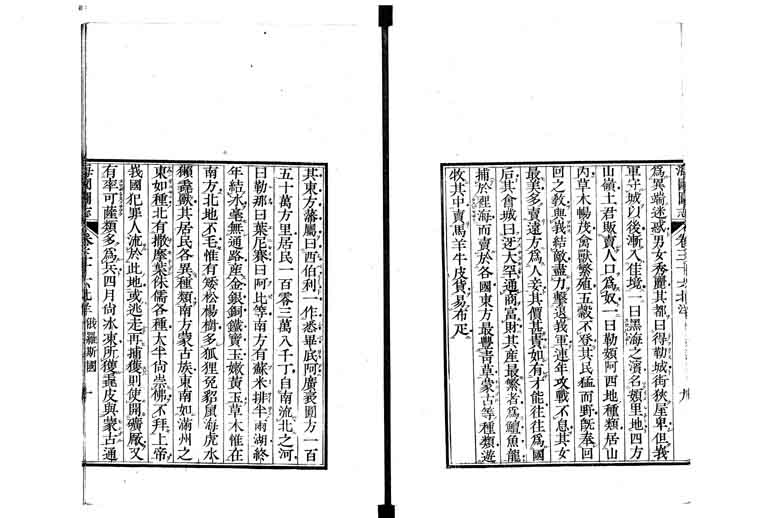 為異端迷惑男女秀麗其都曰得勒城街狹屋卑但我
軍守城以後漸入佳境一曰黑海之濱名額里地四方
山嶺土君販賣人口為奴一曰勒額阿西地種類居山
內草木暢茂禽獸繁殖五穀不登其民猛而野旣奉回
回之敎與我結敵盡力擊退我軍連年攻戰不息其女
最美多賣遠方為人妾其價甚貴如有才能往往為國
后其會城曰迓大罕通商富財其產最繁者為鱣魚龍
捕於裡海而賣於各國東方最豐青草蒙古等種類遊
牧其中賣馬羊牛皮貨易布疋
其東方藩屬曰西伯利一作悉畢底阿廣袤圓方一百
五十萬方里居民一百零三萬八千丁自南流北之河
曰勒那曰葉尼賽曰阿比等南方有蘇米排半雨湖終
年結冰毫無通路產金銀銅鐵寶玉嫩黃玉草木惟在
南方北地不毛惟有矮松楊樹多狐狸兔貂鼠海虎水
獺毳獸其居民各異種類南方蒙古族東南如滿州之
東如種北有撒摩葉侏儒各種大半尙崇佛不拜上帝
我國犯罪人流於此地或逃走再捕獲則使開礦厰又
有率可薩類多為兵四月尙水東所獲毳皮與蒙古通
海國圖志 卷三十六 北洋 俄羅斯國